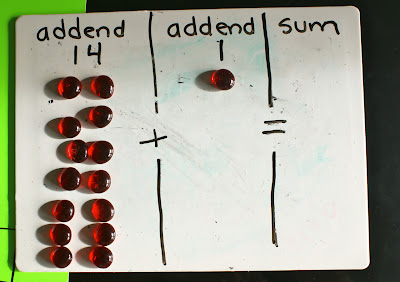 addend addend sum
14 1
+ =